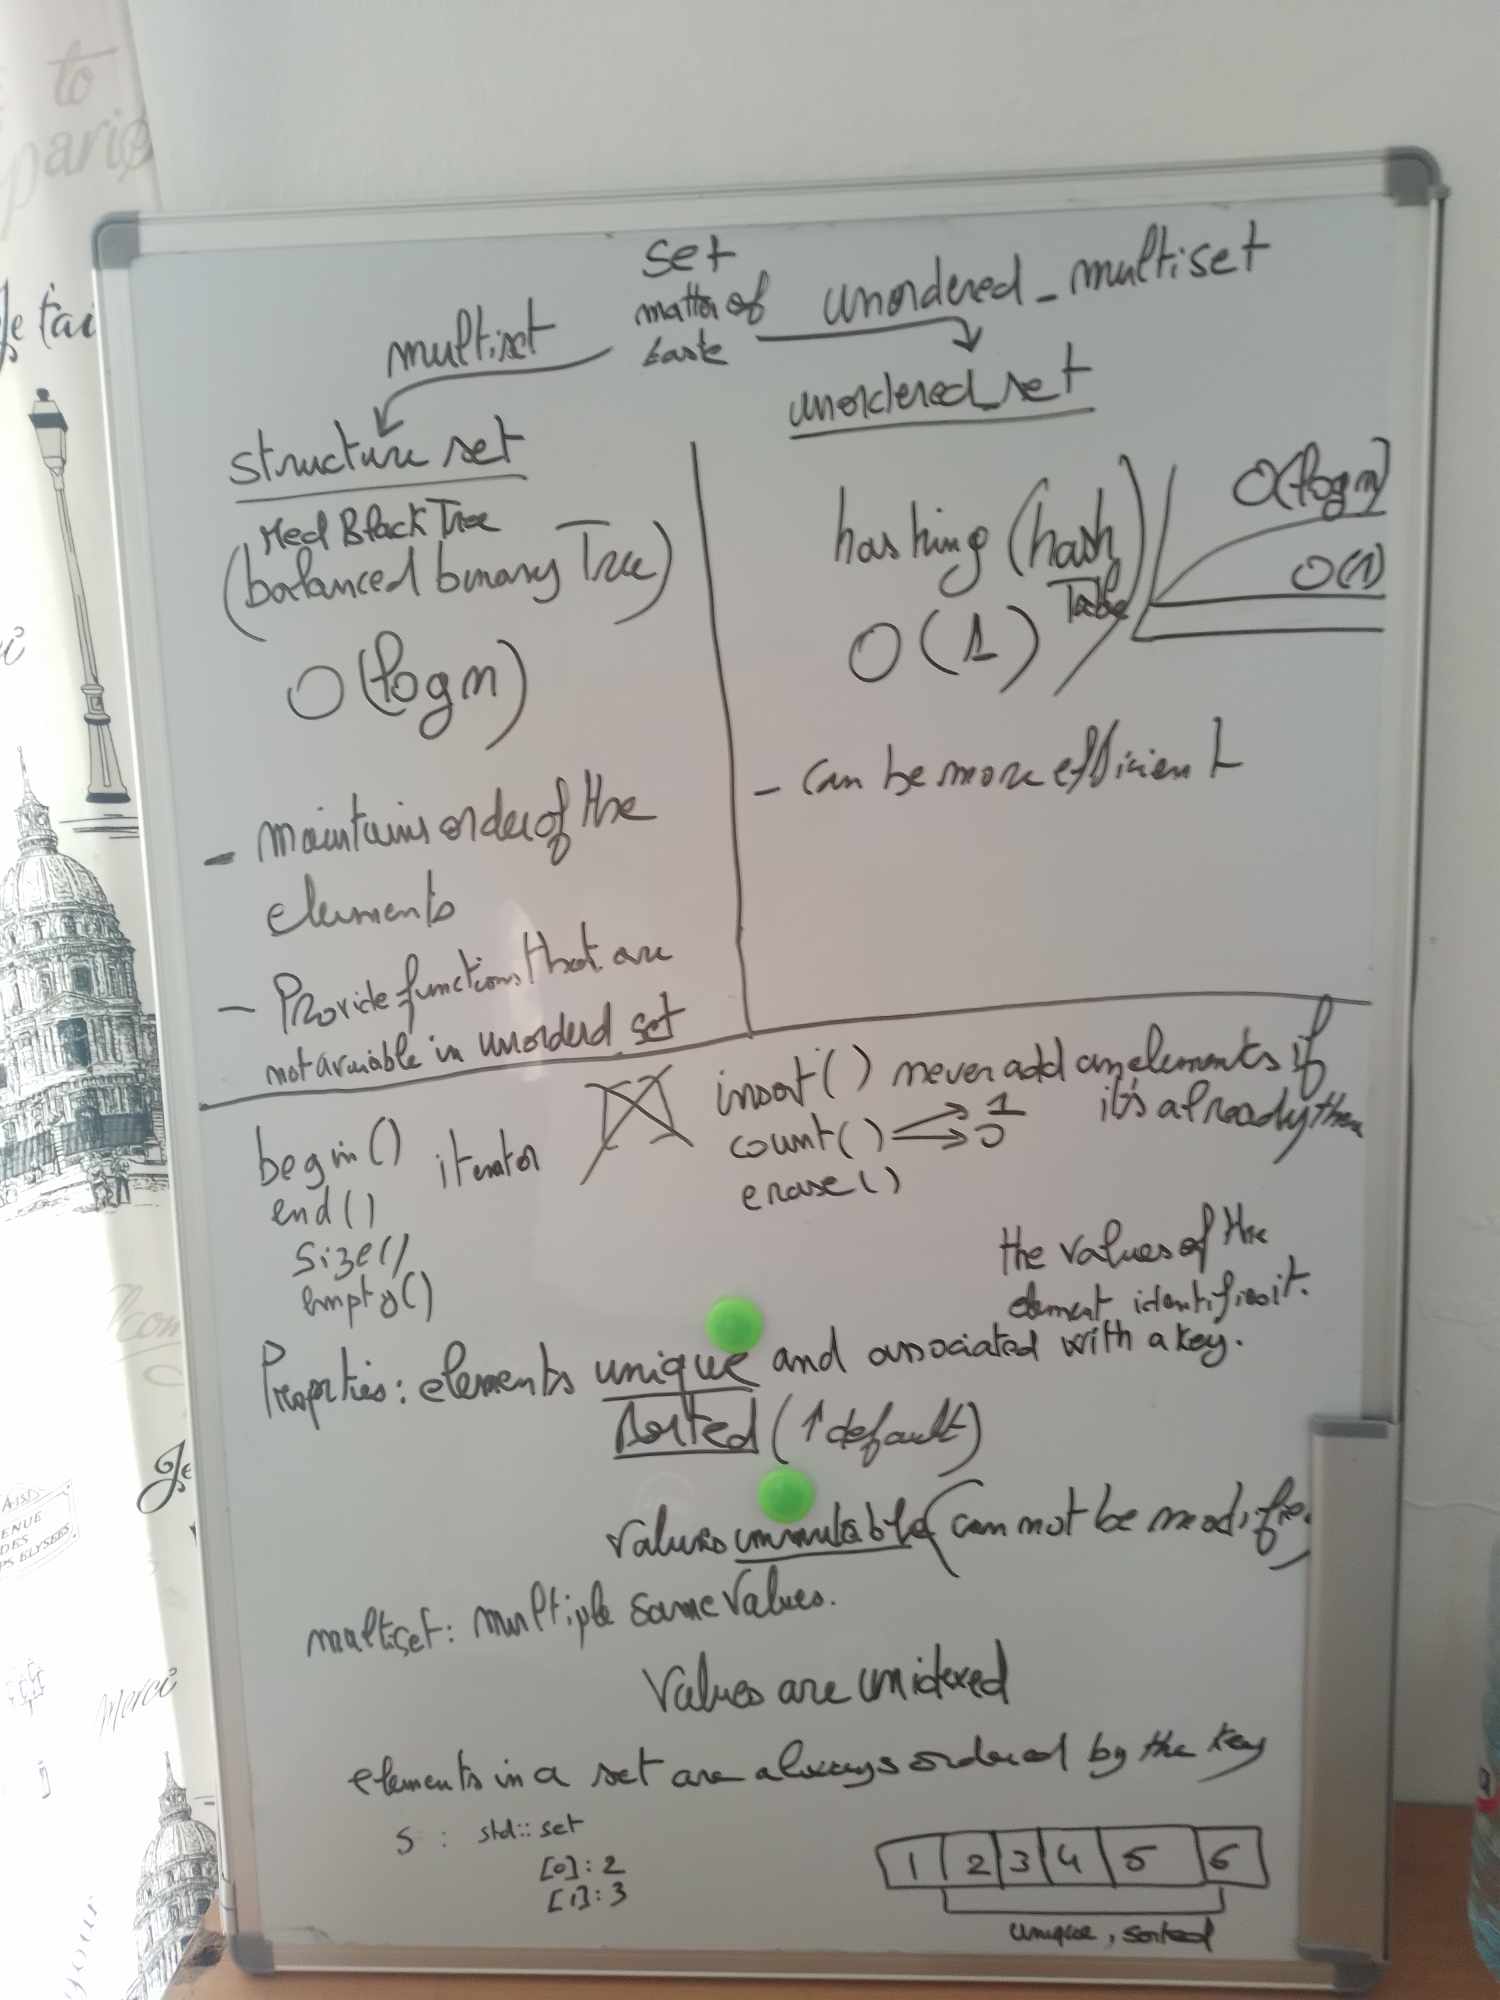 to
paris
Je t'ai
set
matter of
taste
multiset
unordered_multiset
structure set
Red Black Tree
(balanced binary Tree)
O(log n)
- maintains order of the
elements
- Provide functions that are
not avaiable in unorderd set
unordered_set
hashing (hash
Table)
O(1)
O(log n)
O(1)
- can be more efficient
begin()
end()
size()
empty()
iterator
insert() never add an elements if
it's already there
count() 1
0
erase()
the values of the
element identifies it.
Properties: elements unique and associated with a key.
sorted (↑ default)
values immutable (can not be modifie
multiset: multiple same values.
Values are unidexed
elements in a set are always ordered by the key
S : std::set
[0]: 2
[1]: 3
1 2 3 4 5 6
unique, sorted
Je
ENUE
DES
PS ELYSEES
Merci